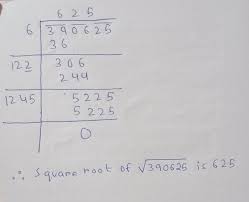 6 2 5
6 390625
36
122 306
244
1245 5225
5225
0
∴ Square root of √390625 is 625